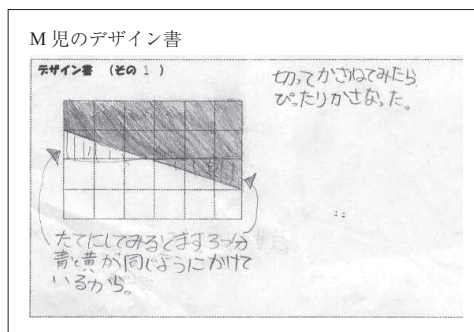 M 児のデザイン書
デザイン書 (その 1 )
切ってかさねてみたら
ぴったりかさなった。
たてにしてみるとます3つ分
青と黄が同じようにかけて
いるから。